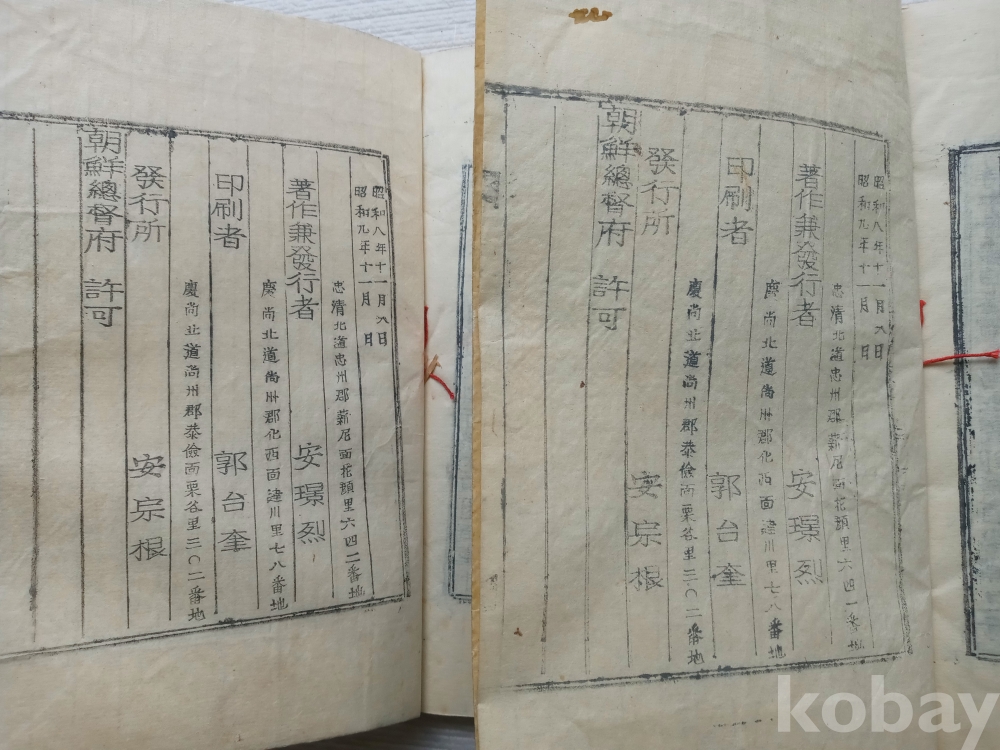 昭和八年十一月 日
昭和九年十一月 日
忠清北道忠州郡薪尼面花顔里六四二番地
著作兼發行者 安璟烈
慶尚北道尚州郡化西面達川里七八番地
印刷者 郭台奎
慶尚北道尚州郡恭儉面栗谷里三〇二番地
發行所 安宗根
朝鮮總督府 許可
昭和八年十一月 日
昭和九年十一月 日
忠清北道忠州郡薪尼面花顔里六四一番地
著作兼發行者 安璟烈
慶尚北道尚州郡化西面達川里七八番地
印刷者 郭台奎
慶尚北道尚州郡恭儉面栗谷里三〇二番地
發行所 安宗根
朝鮮總督府 許可
kobay